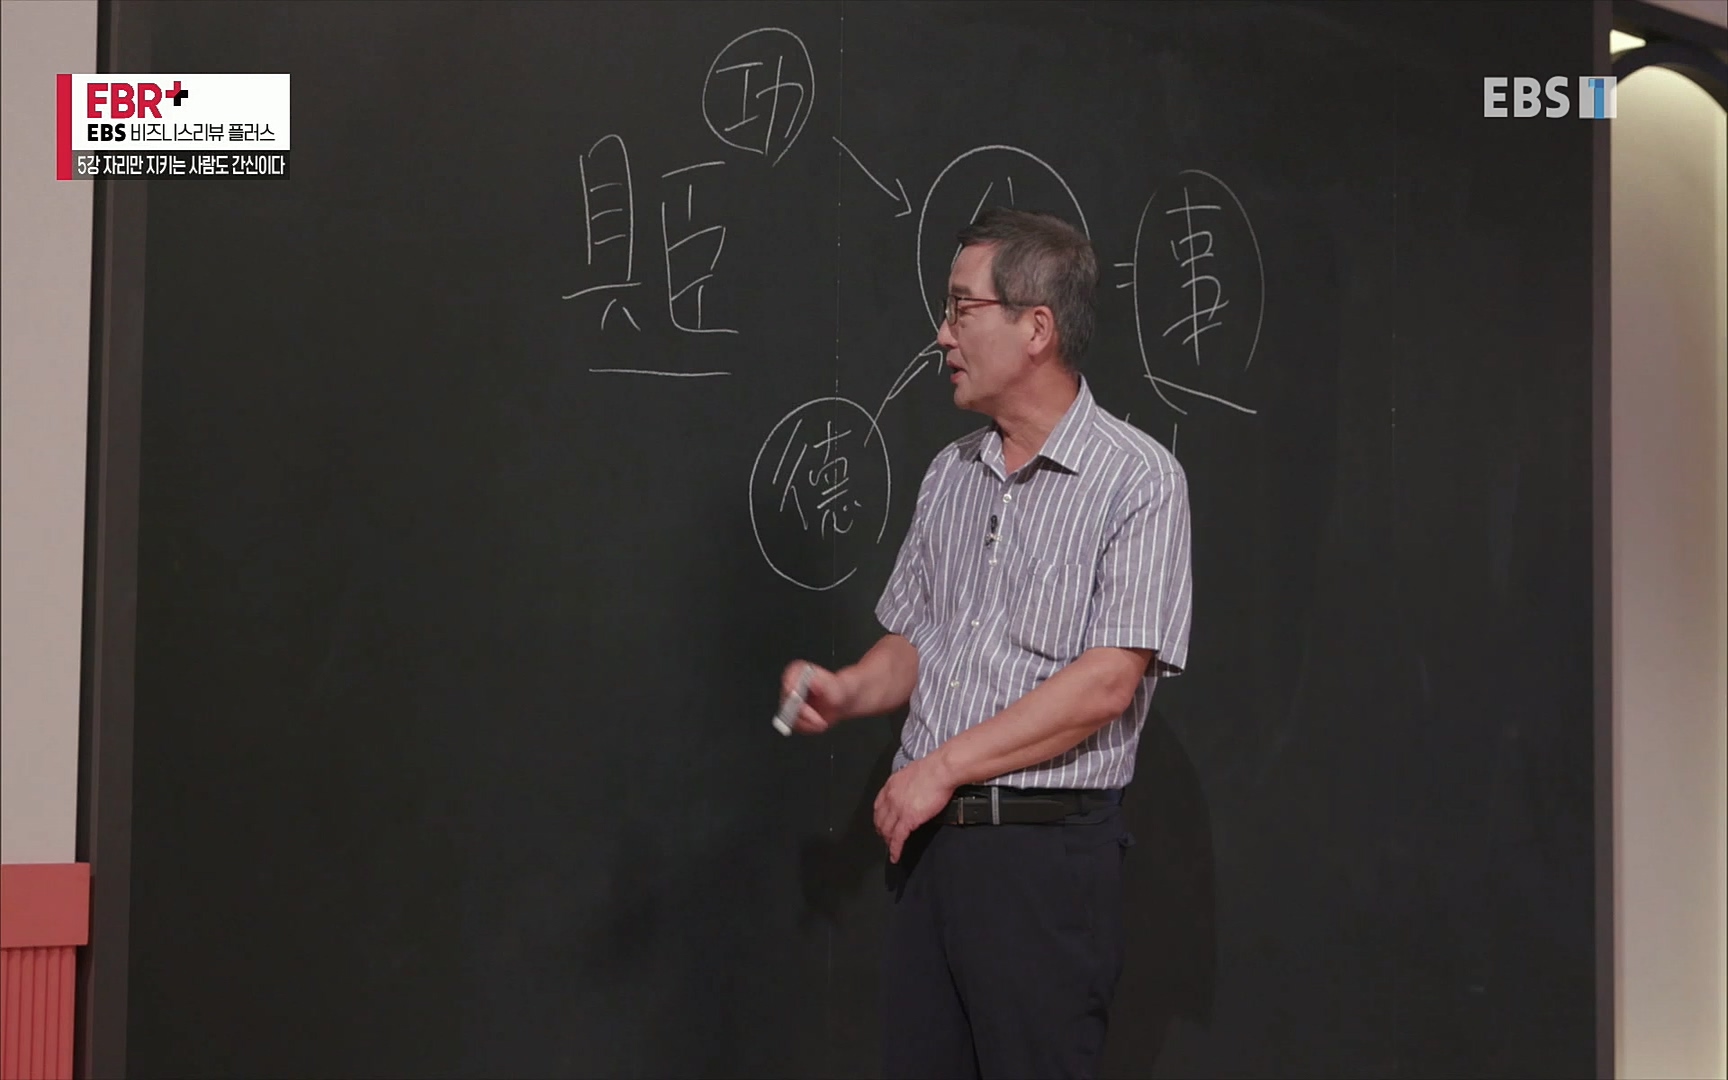 EBR+
EBS 비즈니스리뷰 플러스
5강 자리만 지키는 사람도 간신이다
EBS 1
功
具臣
事
德